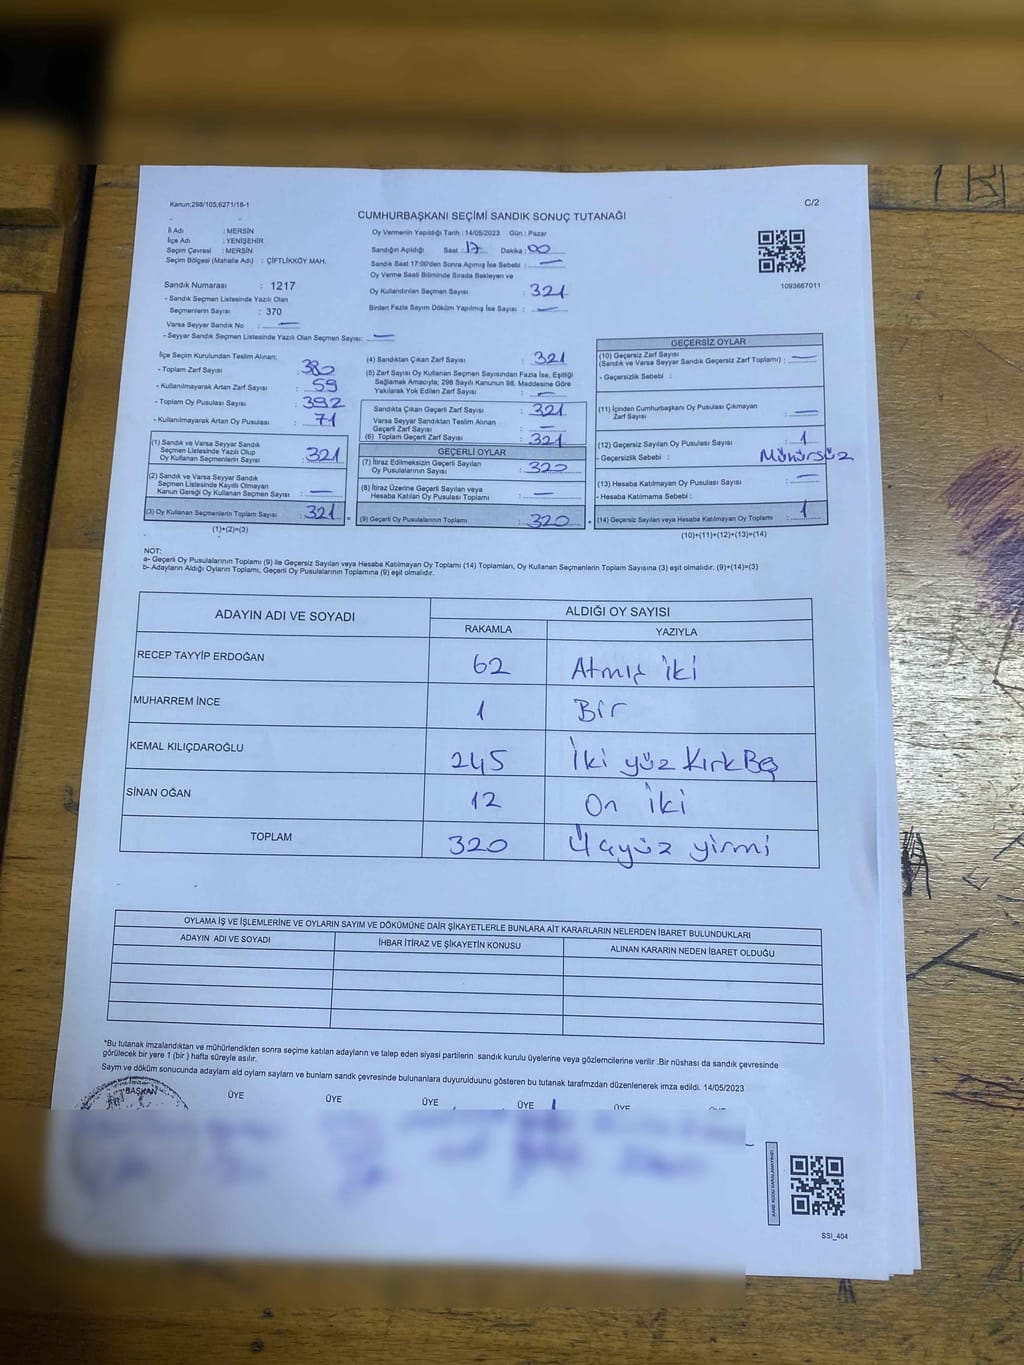 Kanun;298/105,6271/18-1
C/2
CUMHURBAŞKANI SEÇİMİ SANDIK SONUÇ TUTANAĞI
İl Adı : MERSİN
İlçe Adı : YENİŞEHİR
Seçim Çevresi : MERSİN
Seçim Bölgesi (Mahalle Adı) : ÇİFTLİKKÖY MAH.
Oy Vermenin Yapıldığı Tarih : 14/05/2023 Gün : Pazar
Sandığın Açıldığı Saat : 17 Dakika : 00
Sandık Saat 17:00'den Sonra Açımış İse Sebebi : —
Oy Verme Saati Bitiminde Sırada Bekleyen ve
Oy Kullandırılan Seçmen Sayısı : 321
Birden Fazla Sayım Döküm Yapılmış İse Sayısı : —
1093667011
Sandık Numarası : 1217
- Sandık Seçmen Listesinde Yazılı Olan
Seçmenlerin Sayısı : 370
Varsa Seyyar Sandık No : —
- Seyyar Sandık Seçmen Listesinde Yazılı Olan Seçmen Sayısı: —
İlçe Seçim Kurulundan Teslim Alınan;
- Toplam Zarf Sayısı : 380
- Kullanılmayarak Artan Zarf Sayısı : 59
- Toplam Oy Pusulası Sayısı : 392
- Kullanılmayarak Artan Oy Pusulası : 71
(1) Sandık ve Varsa Seyyar Sandık
Seçmen Listesinde Yazılı Olup
Oy Kullanan Seçmenlerin Sayısı : 321
(2) Sandık ve Varsa Seyyar Sandık
Seçmen Listesinde Kayıtlı Olmayan
Kanun Gereği Oy Kullanan Seçmen Sayısı : —
(3) Oy Kullanan Seçmenlerin Toplam Sayısı : 321
(1)+(2)=(3)
(4) Sandıktan Çıkan Zarf Sayısı : 321
(5) Zarf Sayısı Oy Kullanan Seçmen Sayısından Fazla İse, Eşitliği
Sağlamak Amacıyla; 298 Sayılı Kanunun 98. Maddesine Göre
Yakılarak Yok Edilen Zarf Sayısı : —
Sandıkta Çıkan Geçerli Zarf Sayısı : 321
Varsa Seyyar Sandıktan Teslim Alınan
Geçerli Zarf Sayısı : —
(6) Toplam Geçerli Zarf Sayısı : 321
GEÇERLİ OYLAR
(7) İtiraz Edilmeksizin Geçerli Sayılan
Oy Pusulalarının Sayısı : 320
(8) İtiraz Üzerine Geçerli Sayılan veya
Hesaba Katılan Oy Pusulası Toplamı : —
(9) Geçerli Oy Pusulalarının Toplamı : 320
GEÇERSİZ OYLAR
(10) Geçersiz Zarf Sayısı
(Sandık ve Varsa Seyyar Sandık Geçersiz Zarf Toplamı) : —
- Geçersizlik Sebebi :
(11) İçinden Cumhurbaşkanı Oy Pusulası Çıkmayan
Zarf Sayısı : —
(12) Geçersiz Sayılan Oy Pusulası Sayısı : 1
- Geçersizlik Sebebi : Mühürsüz
(13) Hesaba Katılmayan Oy Pusulası Sayısı : —
- Hesaba Katılmama Sebebi :
(14) Geçersiz Sayılan veya Hesaba Katılmayan Oy Toplamı : 1
(10)+(11)+(12)+(13)=(14)
NOT:
a- Geçerli Oy Pusulalarının Toplamı (9) ile Geçersiz Sayılan veya Hesaba Katılmayan Oy Toplamı (14) Toplamları, Oy Kullanan Seçmenlerin Toplam Sayısına (3) eşit olmalıdır. (9)+(14)=(3)
b- Adayların Aldığı Oyların Toplamı, Geçerli Oy Pusulalarının Toplamına (9) eşit olmalıdır.
ADAYIN ADI VE SOYADI ALDIĞI OY SAYISI
RAKAMLA YAZIYLA
RECEP TAYYİP ERDOĞAN 62 Atmış iki
MUHARREM İNCE 1 Bir
KEMAL KILIÇDAROĞLU 245 İki yüz Kırk Beş
SİNAN OĞAN 12 On iki
TOPLAM 320 Üçyüz yirmi
OYLAMA İŞ VE İŞLEMLERİNE VE OYLARIN SAYIM VE DÖKÜMÜNE DAİR ŞİKAYETLERLE BUNLARA AİT KARARLARIN NELERDEN İBARET BULUNDUKLARI
ADAYIN ADI VE SOYADI İHBAR İTİRAZ VE ŞİKAYETİN KONUSU ALINAN KARARIN NEDEN İBARET OLDUĞU
*Bu tutanak imzalandıktan ve mühürlendikten sonra seçime katılan adayların ve talep eden siyasi partilerin sandık kurulu üyelerine veya gözlemcilerine verilir .Bir nüshası da sandık çevresinde
görülecek bir yere 1 (bir ) hafta süreyle asılır.
Sayım ve döküm sonucunda adaylarn ald oylarn saylarn ve bunlarn sandk çevresinde bulunanlara duyurulduunu gösteren bu tutanak tarafmzdan düzenlenerek imza edildi. 14/05/2023
BAŞKAN ÜYE ÜYE ÜYE ÜYE ÜYE
SSI_404